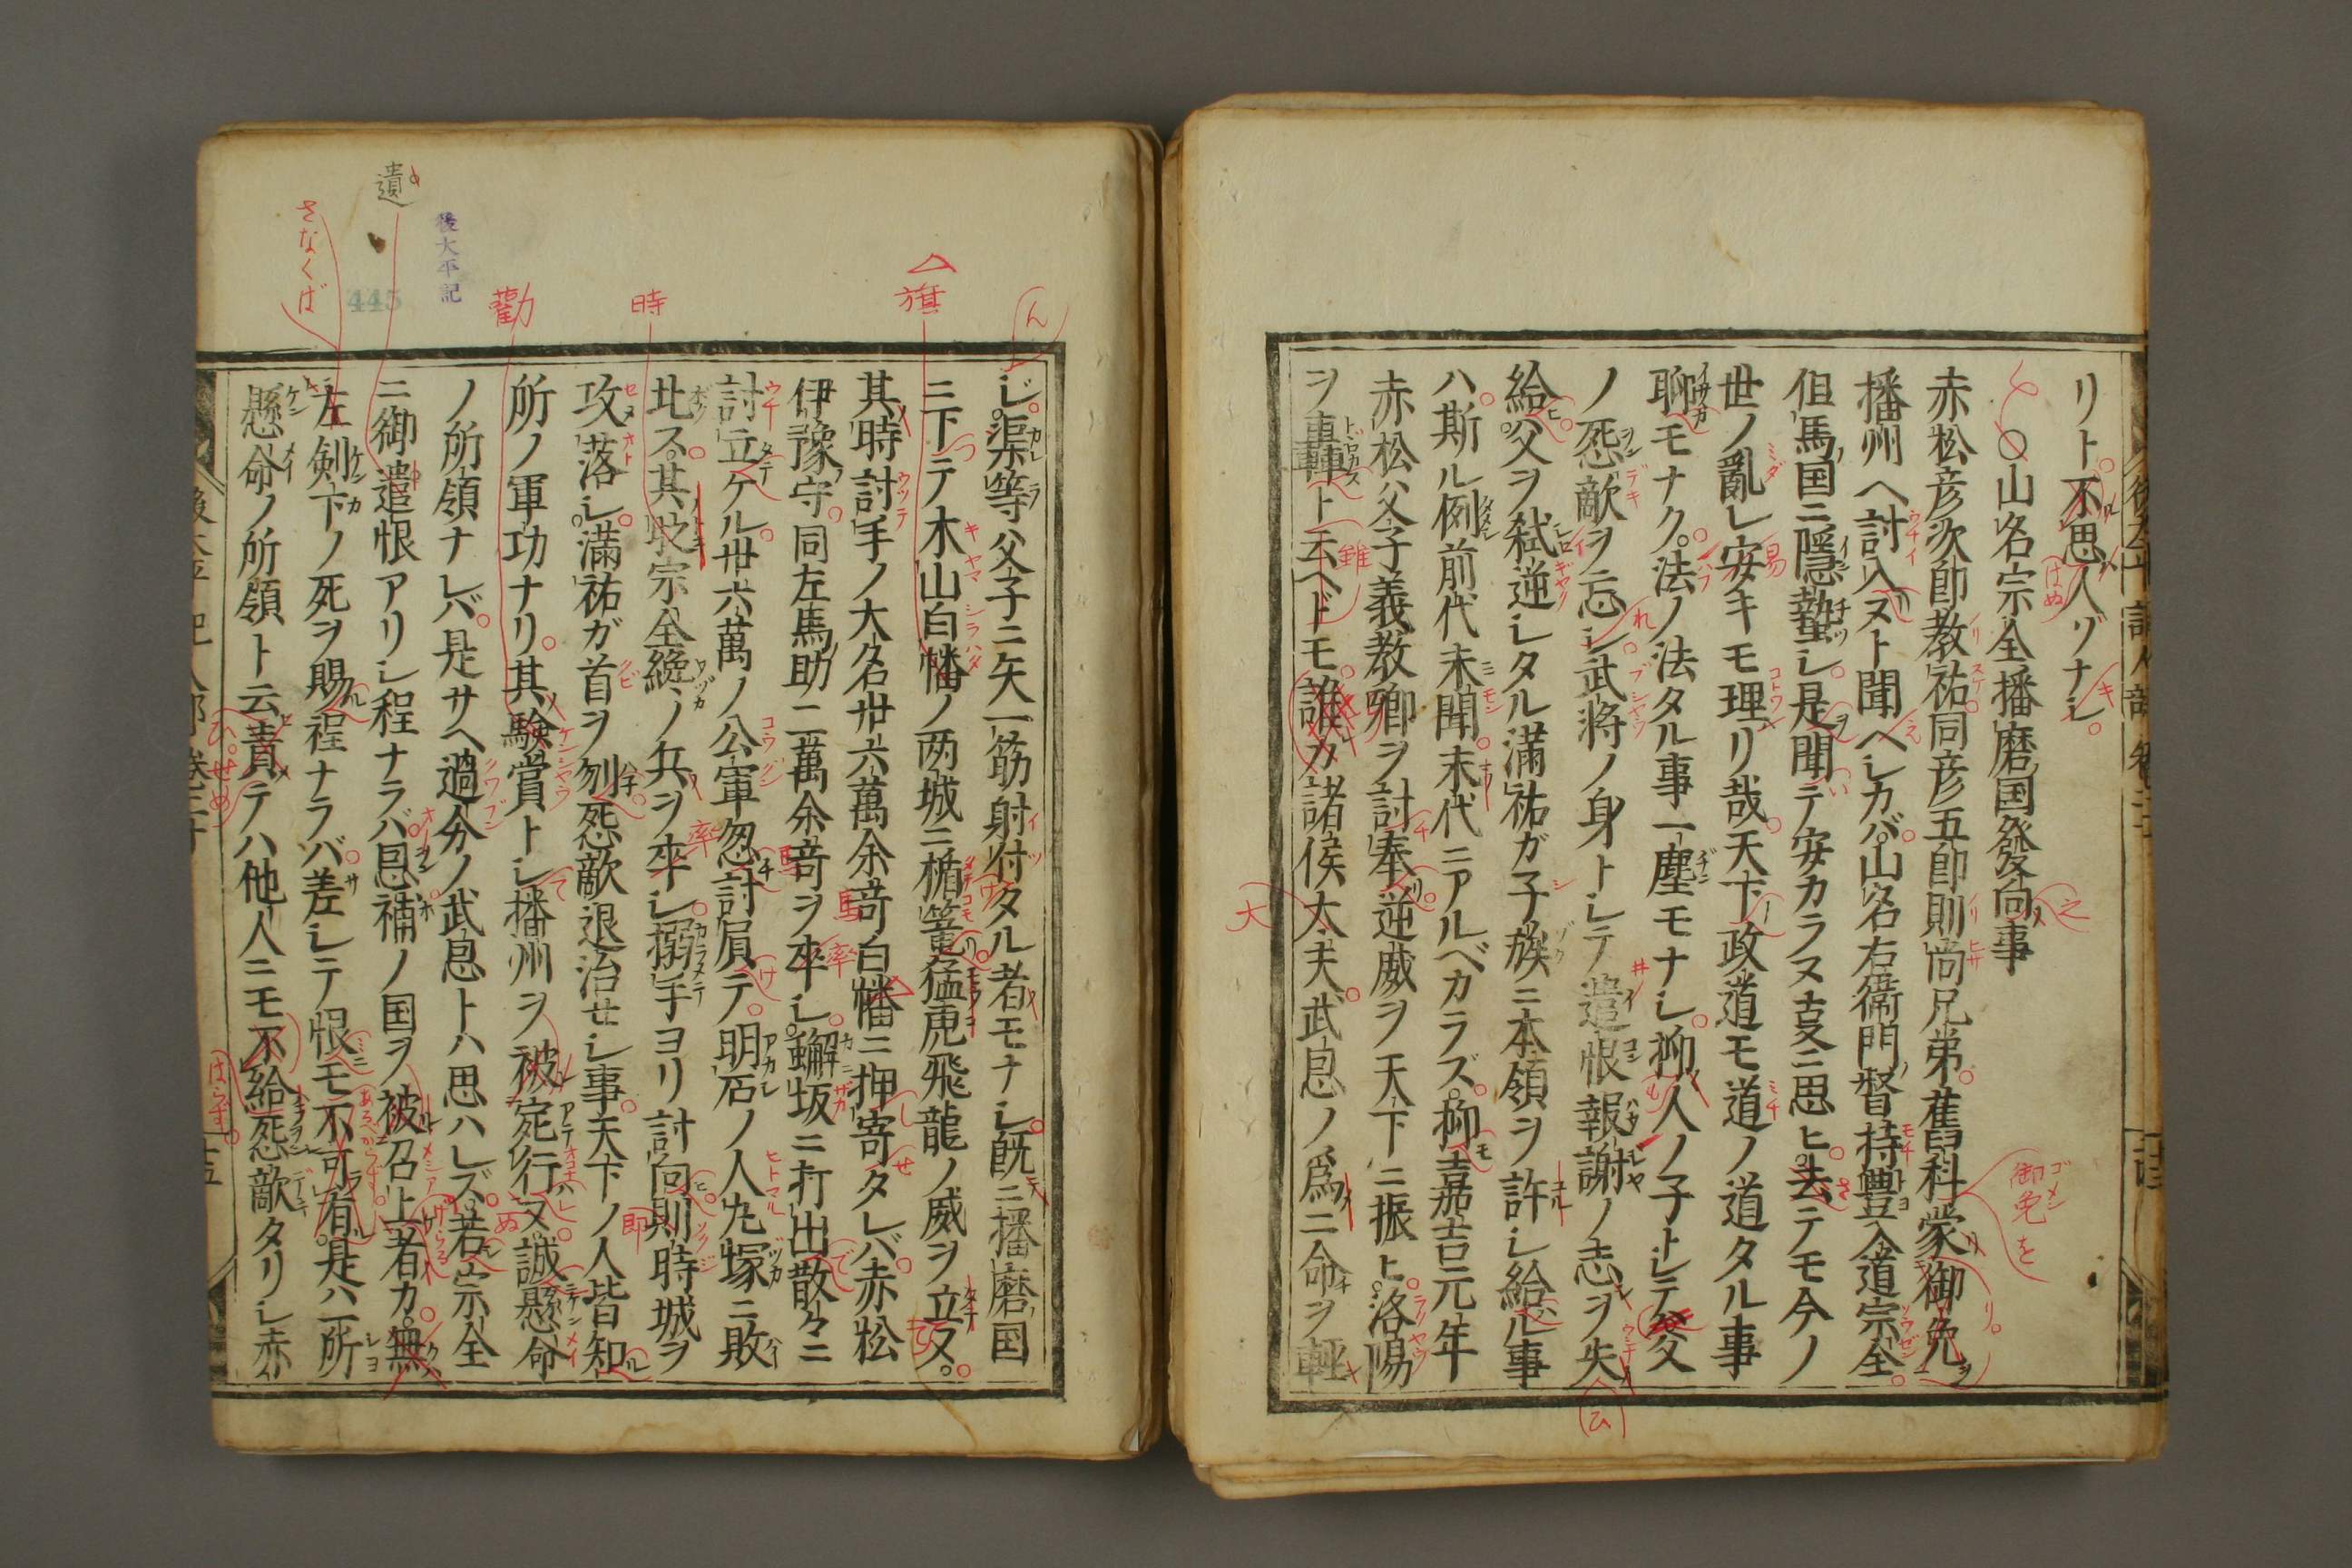 リト不思人ゾナシ
山名宗全播磨国發向事
赤松彦次郎教祐同彦五郎則尚兄弟舊科蒙御免
播州ヘ討入ヌト聞ヘシカバ山名右衛門督持豊入道宗全
但馬国ニ隱蟄シ是聞テ安カラヌ支ニ思ヒ去テモ今ノ
世ノ亂レ安キモ理リ哉天下政道モ道ノ道タル事
聊モナク法ノ法タル事一塵モナシ抑人ノ子トシテ父
ノ怨敵ヲ忘レ武将ノ身トシテ遺恨報謝ノ志ヲ失
給父ヲ弑逆シタル滿祐ガ子族ニ本領ヲ許シ給ル事
ハ斯ル例前代未聞末代ニアルベカラズ抑嘉吉元年
赤松父子義教卿ヲ討奉逆威ヲ天下ニ振ヒ洛陽
ヲ轟ト云ヘドモ誰カ諸侯大夫武恩ノ爲ニ命ヲ輕
ジ渠等父子ニ矢一筋射付タル者モナシ既ニ播磨国
ニ下テ木山白幡ノ两城ニ楯篭猛虎飛龍ノ威ヲ立ヌ
其時討手ノ大名廿六萬余竒白幡ニ押寄タレバ赤松
伊豫守同左馬助二萬余竒ヲ卒シ蠏坂ニ打出散々ニ
討立ケル廿六萬ノ公軍忽討屓テ明石ノ人丸塚ニ敗
北ス其昤宗全纔ノ兵ヲ卒シ搦手ヨリ討向則時城ヲ
攻落シ滿祐ガ首ヲ刎怨敵退治せシ事天下ノ人皆知
所ノ軍功ナリ其驗賞トシ播州ヲ被宛行ヌ誠懸命
ノ所領ナレバ是サヘ過分ノ武恩トハ思ハレズ若宗全
ニ御遣恨アリシ程ナラバ恩補ノ国ヲ被召上者カ無
左剣下ノ死ヲ賜程ナラバ差シテ恨モ不可有是ハ一所
懸命ノ所領ト云責テハ他人ニモ不給怨敵タリシ赤
遺
さなくば
後太平記
445
勸
時
旗
ん
御免を
ゴメン